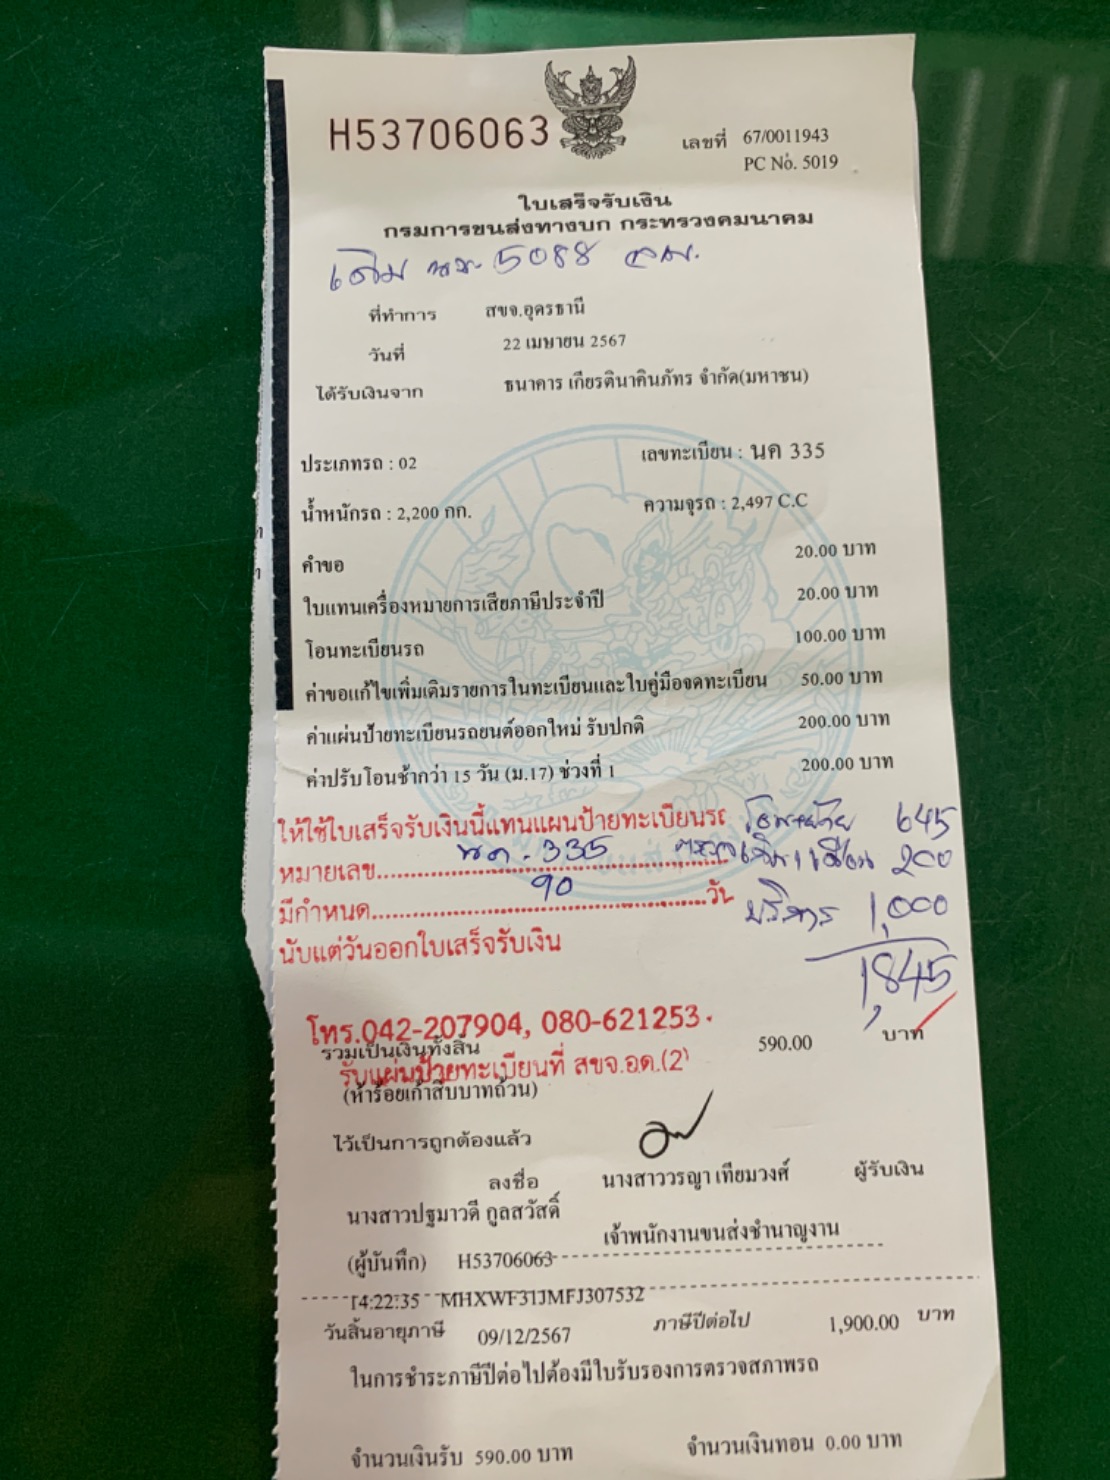 H53706063
เลขที่ 67/0011943
PC No. 5019
ใบเสร็จรับเงิน
กรมการขนส่งทางบก กระทรวงคมนาคม
เดิม 5088 อด.
ที่ทำการ สขจ.อุดรธานี
วันที่ 22 เมษายน 2567
ได้รับเงินจาก ธนาคาร เกียรตินาคินภัทร จำกัด(มหาชน)
ประเภทรถ : 02 เลขทะเบียน : นค 335
น้ำหนักรถ : 2,200 กก. ความจุรถ : 2,497 C.C
คำขอ 20.00 บาท
ใบแทนเครื่องหมายการเสียภาษีประจำปี 20.00 บาท
โอนทะเบียนรถ 100.00 บาท
ค่าขอแก้ไขเพิ่มเติมรายการในทะเบียนและใบคู่มือจดทะเบียน 50.00 บาท
ค่าแผ่นป้ายทะเบียนรถยนต์ออกใหม่ รับปกติ 200.00 บาท
ค่าปรับโอนช้ากว่า 15 วัน (ม.17) ช่วงที่ 1 200.00 บาท
ให้ใช้ใบเสร็จรับเงินนี้แทนแผนป้ายทะเบียนรถ 645
หมายเลข นค-335 200
มีกำหนด 90 วัน บริการ 1,000
นับแต่วันออกใบเสร็จรับเงิน
1,845
โทร.042-207904, 080-621253.
รวมเป็นเงินทั้งสิ้น 590.00 บาท
รับแผ่นป้ายทะเบียนที่ สขจ.อด.(2)
(ห้าร้อยเก้าสิบบาทถ้วน)
ไว้เป็นการถูกต้องแล้ว
ลงชื่อ นางสาววรญา เทียมวงศ์ ผู้รับเงิน
นางสาวปฐมาวดี กูลสวัสดิ์
เจ้าพนักงานขนส่งชำนาญงาน
(ผู้บันทึก) H53706063
14:22:35 MHXWF31JMFJ307532
วันสิ้นอายุภาษี 09/12/2567 ภาษีปีต่อไป 1,900.00 บาท
ในการชำระภาษีปีต่อไปต้องมีใบรับรองการตรวจสภาพรถ
จำนวนเงินรับ 590.00 บาท จำนวนเงินทอน 0.00 บาท